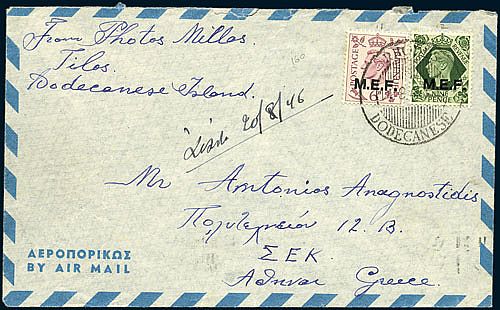 From Photos Millas
Tilos
Dodecanese Island.
20/8/46
POSTAGE
M.E.F. M.E.F.
NINE
PENCE
DODECANESE
Mr Antonios Anagnostidis
Πολυτεχνείον 12. B.
ΣΕΚ
Αθηναι Greece.
ΑΕΡΟΠΟΡΙΚΩΣ
BY AIR MAIL